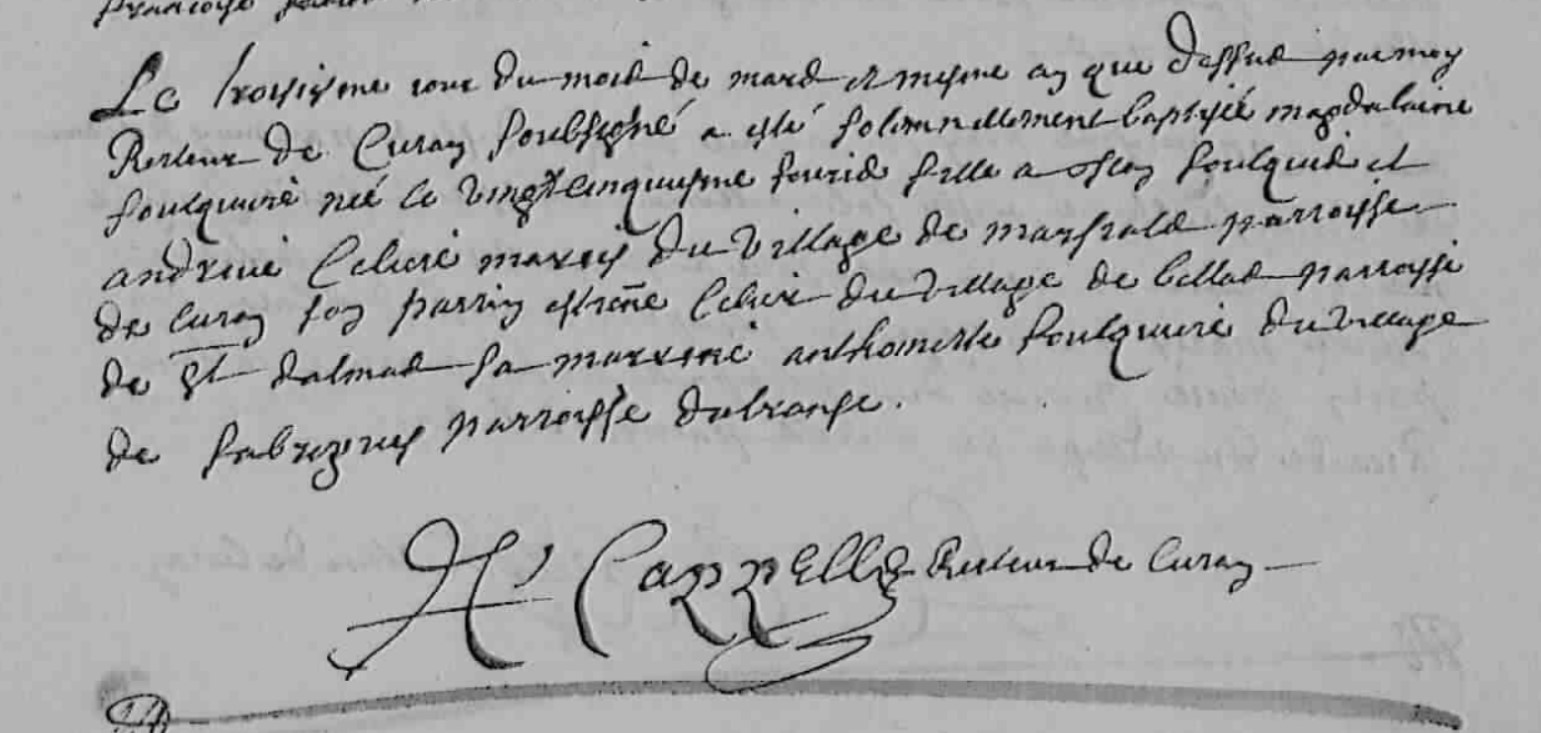 Le troisiesme iour du mois de mars et mesme an que dessus par moy
Recteur de Curan soubsigné a esté solemnellement baptisée magdalaine
foulquiere née le vingt cinquiesme feurié fille a foulquié et
andrive Celierè mariés du village de parroisse
de Curan son parrin estiene Celier du village de billac parroisse
de St dalmas sa marrine anthoinette foulquiere du village
de fabregues parroisse
A Cappelle Recteur de Curan